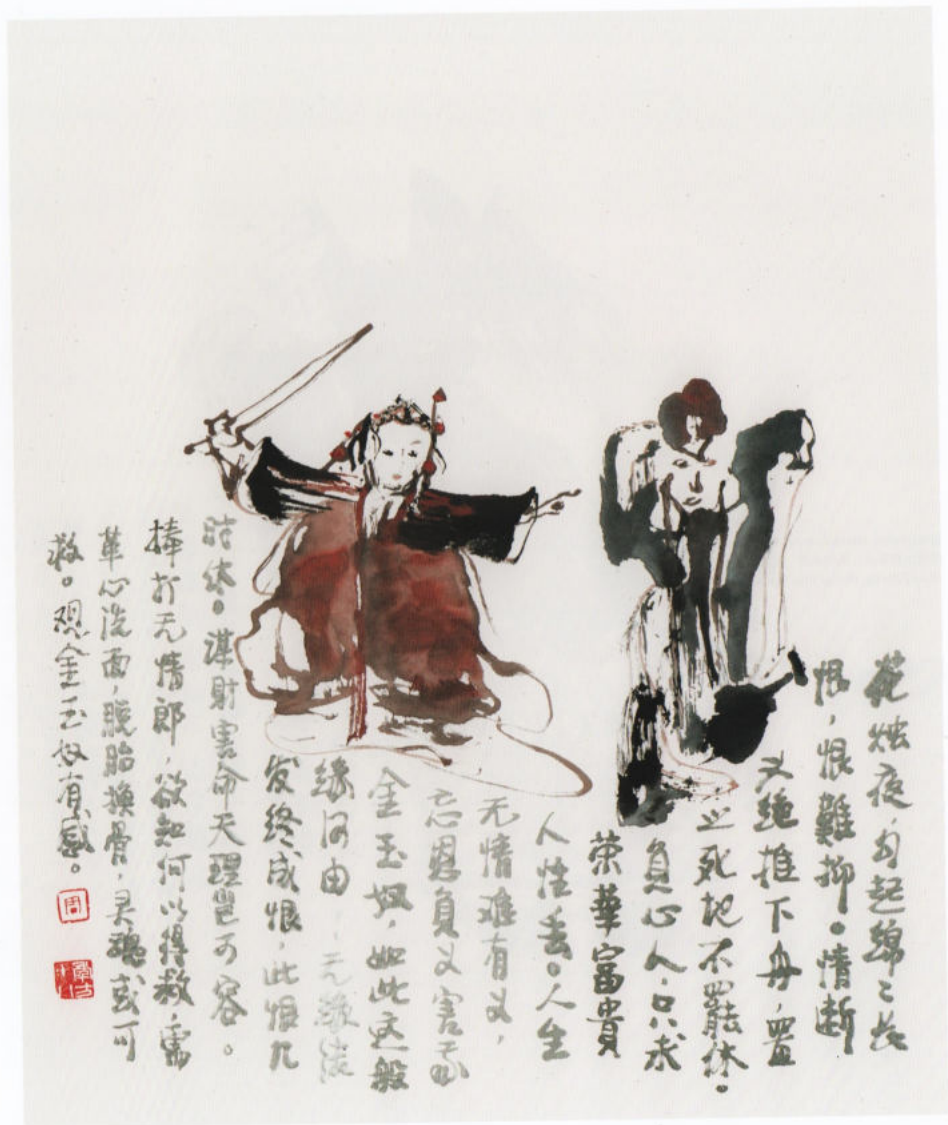 花烛夜，勾起綿々长
恨，恨難抑。情断
义绝推下舟，置
之死地不罷休。
负心人，只求
荣華富貴
人性丢。人生
无情难有义，
忘恩負义害
金玉奴，如此这般
缘何由，无缘结
发终成恨，此恨几
时休。谋財害命天理岂可容。
棒打无情郎，欲知何以得救，需
革心洗面，脱胎换骨，灵魂或可
救。观金玉奴有感。
周